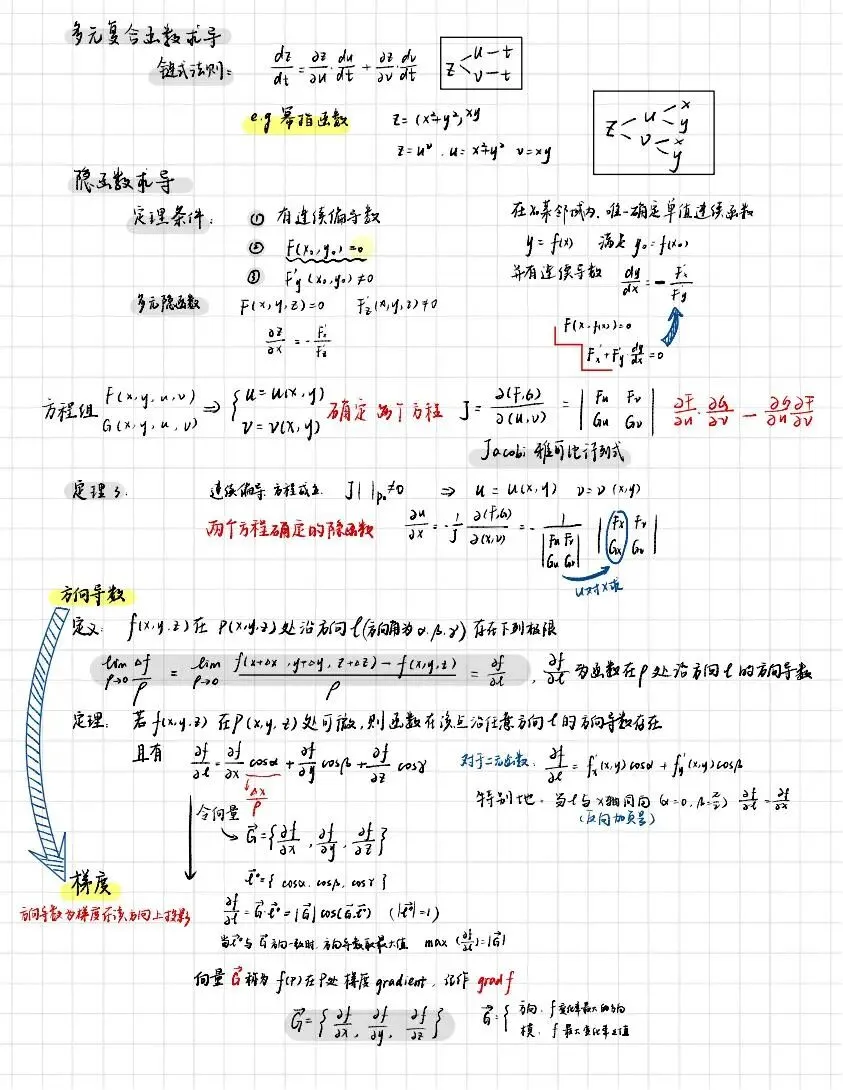 多元复合函数求导
链式法则: dz/dt = ∂z/∂u · du/dt + ∂z/∂v · dv/dt   z < u — t, v — t
e.g 幂指函数   z = (x²+y²)^xy
z = u^v , u = x²+y²  v = xy   z < u < x, y ; v < x, y
隐函数求导
定理条件: ① 有连续偏导数
② F(x₀,y₀)=0
③ F'y(x₀,y₀)≠0
在x₀某邻域内, 唯一确定单值连续函数
y = f(x)  满足 y₀=f(x₀)
并有连续导数 dy/dx = - F'x/F'y
F(x,f(x))=0
F'x + F'y · dy/dx = 0
多元隐函数  F(x,y,z)=0  F'z(x,y,z)≠0
∂z/∂x = - F'x/F'z
方程组 F(x,y,u,v) G(x,y,u,v) ⇒ { u=u(x,y) v=v(x,y) 确定两个方程 J = ∂(F,G)/∂(u,v) = | Fu Fv Gu Gv | ∂F/∂u · ∂G/∂v — ∂G/∂u ∂F/∂v
Jacobi 雅可比行列式
定理3.  连续偏导 方程成立. J| |p₀≠0 ⇒ u=u(x,y) v=v(x,y)
两个方程确定的隐函数 ∂u/∂x = - 1/J ∂(F,G)/∂(x,v) = - 1/| Fu Fv Gu Gv | | Fx Fv Gx Gv |
u对x求
方向导数
定义: f(x,y,z)在 P(x,y,z)处沿方向l(方向角为α,β,γ)存在下列极限
lim ρ→0 Δf/ρ = lim ρ→0 f(x+Δx,y+Δy,z+Δz)-f(x,y,z)/ρ = ∂f/∂l , ∂f/∂l 为函数在P处沿方向l的方向导数
定理: 若f(x,y,z)在P(x,y,z)处可微,则函数在该点沿任意方向l的方向导数存在
且有 ∂f/∂l = ∂f/∂x cosα + ∂f/∂y cosβ + ∂f/∂z cosγ
Δx/ρ
对于二元函数, ∂f/∂l = f'x(x,y)cosα + f'y(x,y)cosβ
特别地, 当l与x轴同向 (α=0,β=π/2) ∂f/∂l = ∂f/∂x
(反向加负号)
令向量
G={∂f/∂x , ∂f/∂y , ∂f/∂z}
l°={ cosα, cosβ, cosγ }
梯度
方向导数为梯度在该方向上投影
∂f/∂l = G·l° = |G| cos(G,l°)  (|l°|=1)
当l°与G方向一致时,方向导数取最大值 max (∂f/∂l)=|G|
向量G称为f(P)在P处梯度gradient, 记作 gradf
G={∂f/∂x , ∂f/∂y , ∂f/∂z}
G={ 方向: f变化率最大的方向
模: f最大变化率之值